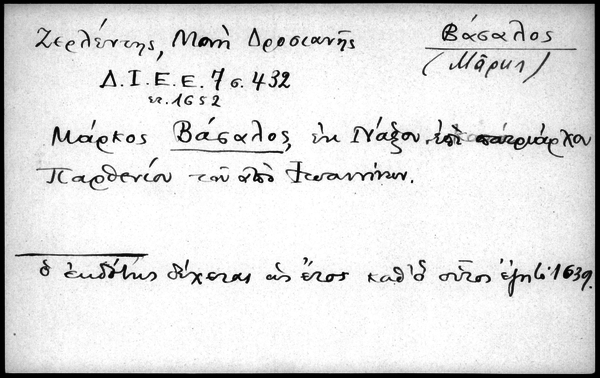 Ζερλέντης, Μονὴ Δροσιανῆς
Βάσαλος
(Μᾶρκ
Δ.Ι.Ε.Ε. 7 σ. 432
ετ. 1652
Μάρκος Βάσαλος, ἐκ Νάξου, ἐπὶ πατριάρχου
Παρθενίου τοῦ ἀπὸ Ἰωαννίνων.
ὁ ἐκδότης δέχεται ὡς ἔτος καθ' ὃ οὗτος 1639.